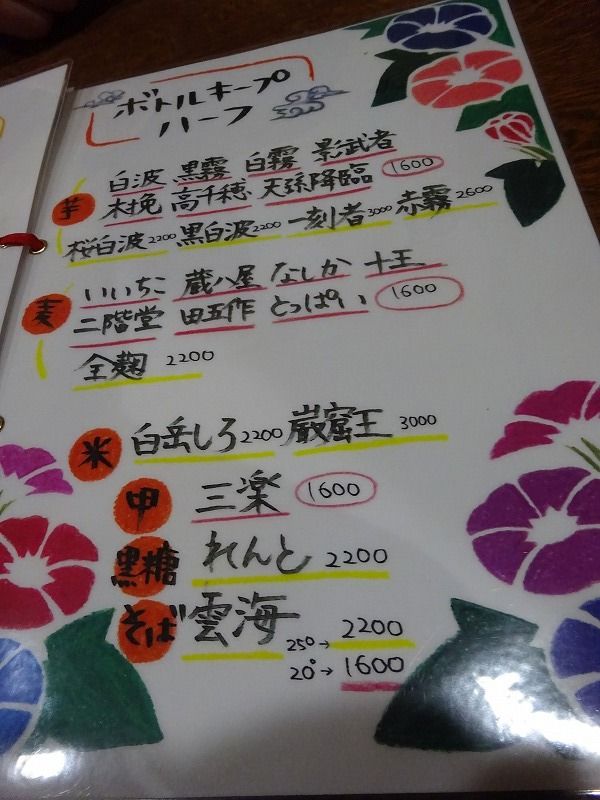 ボトルキープ
ハーフ
芋
白波 黒霧 白霧 影武者
木挽 高千穂 天孫降臨 1600
桜白波2200 黒白波2200 一刻者3000 赤霧2600
麦
いいちこ 蔵八屋 なしか 十王
二階堂 田五作 とっぱい 1600
全麹 2200
米 白岳しろ2200 巌窟王 3000
甲 三楽 1600
黒糖 れんと 2200
そば 雲海 25°→2200
20°→1600